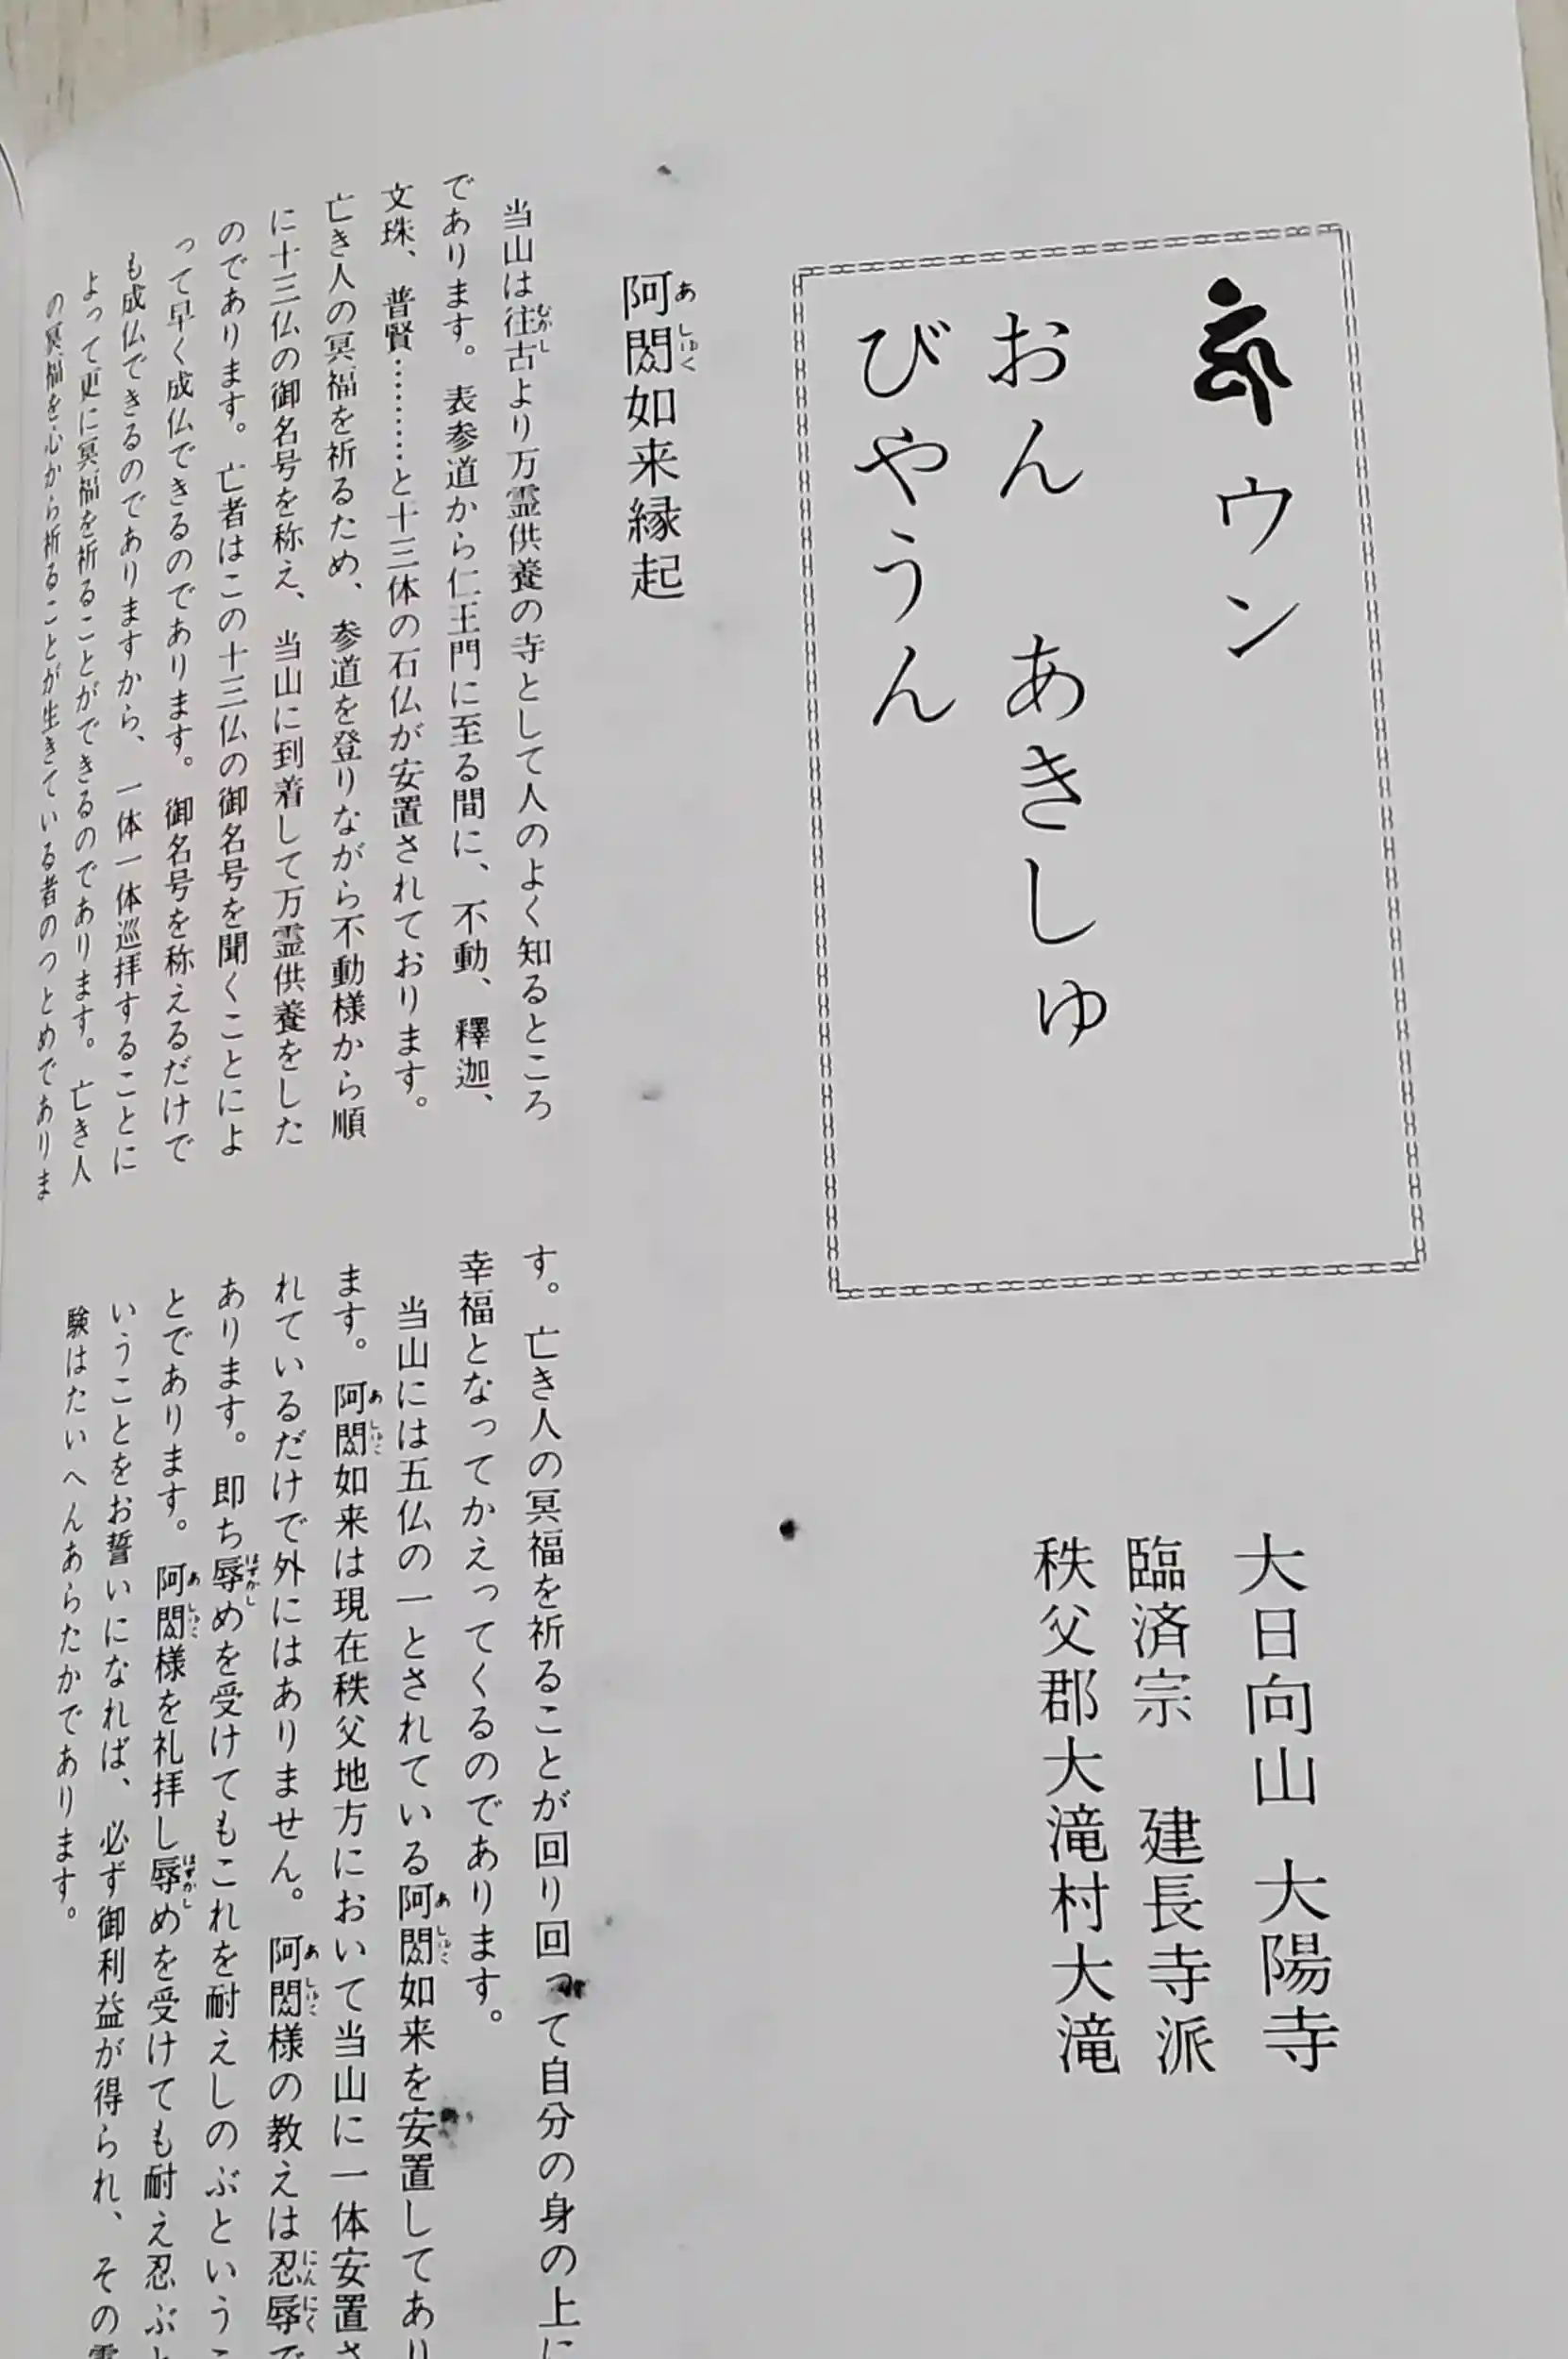 ウン
おん　あきしゅ
びやうん
大日向山　大陽寺
臨済宗　建長寺派
秩父郡大滝村大滝
阿閦如来縁起
あしゅく
当山は往古より万霊供養の寺として人のよく知るところ
むかし
であります。表参道から仁王門に至る間に、不動、釋迦、
文珠、普賢………と十三体の石仏が安置されております。
亡き人の冥福を祈るため、参道を登りながら不動様から順
に十三仏の御名号を称え、当山に到着して万霊供養をした
のであります。亡者はこの十三仏の御名号を聞くことによ
って早く成仏できるのであります。御名号を称えるだけで
も成仏できるのでありますから、一体一体巡拝することに
よって更に冥福を祈ることができるのであります。亡き人
の冥福を心から祈ることが生きている者のつとめでありま
す。亡き人の冥福を祈ることが回り回って自分の身の上に
幸福となってかえってくるのであります。
当山には五仏の一とされている阿閦如来を安置してあり
あしゅく
ます。阿閦如来は現在秩父地方において当山に一体安置さ
あしゅく
れているだけで外にはありません。阿閦様の教えは忍辱で
あしゅく
にんにく
あります。即ち辱めを受けてもこれを耐えしのぶというこ
はずかし
とであります。阿閦様を礼拝し辱めを受けても耐え忍ぶと
あしゅく
はずかし
いうことをお誓いになれば、必ず御利益が得られ、その
験はたいへんあらたかであります。